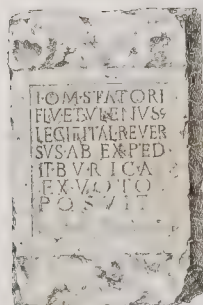 I·O·M·STATORI
FL·VETVLENVS
LEG III ITAL REVER
SVS·AB EXPED
IT·BVRICA
EX·VOTO
POSVIT